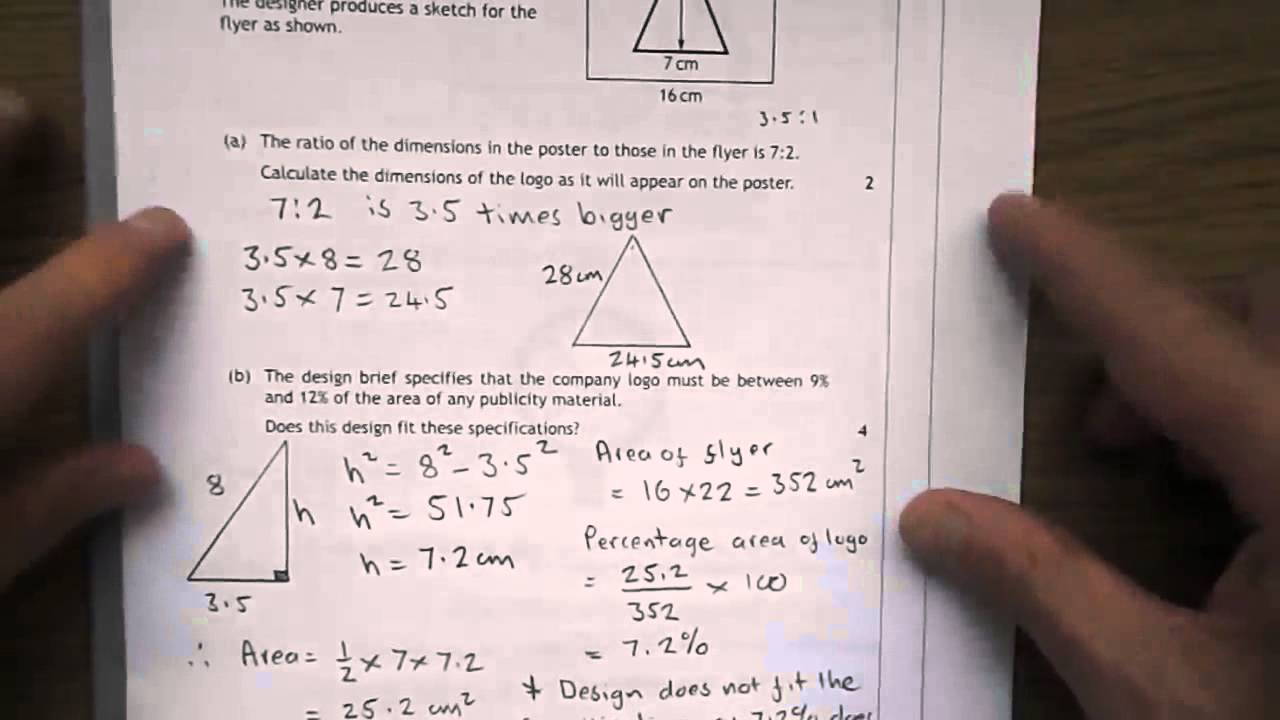 The designer produces a sketch for the
flyer as shown.
7 cm
16 cm
3.5 : 1
(a) The ratio of the dimensions in the poster to those in the flyer is 7:2.
Calculate the dimensions of the logo as it will appear on the poster. 2
7:2 is 3.5 times bigger
3.5 × 8 = 28
3.5 × 7 = 24.5
28 cm
24.5 cm
(b) The design brief specifies that the company logo must be between 9%
and 12% of the area of any publicity material.
Does this design fit these specifications? 4
8
h
3.5
h² = 8² – 3.5²
h² = 51.75
h = 7.2 cm
∴ Area = 1/2 × 7 × 7.2
= 25.2 cm²
Area of flyer
= 16 × 22 = 352 cm²
Percentage area of logo
= 25.2/352 × 100
= 7.2%
* Design does not fit the
7.2% does